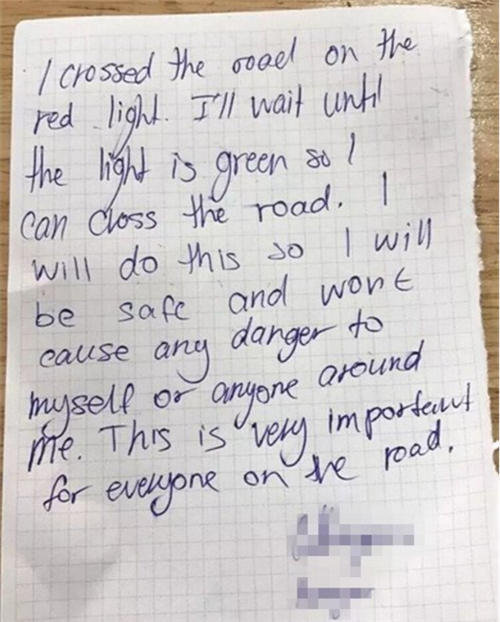 I crossed the road on the
red light. I'll wait until
the light is green so I
can closs the road. I
will do this so I will
be safe and wont
cause any danger to
myself or anyone around
me. This is very important
for everyone on the road.